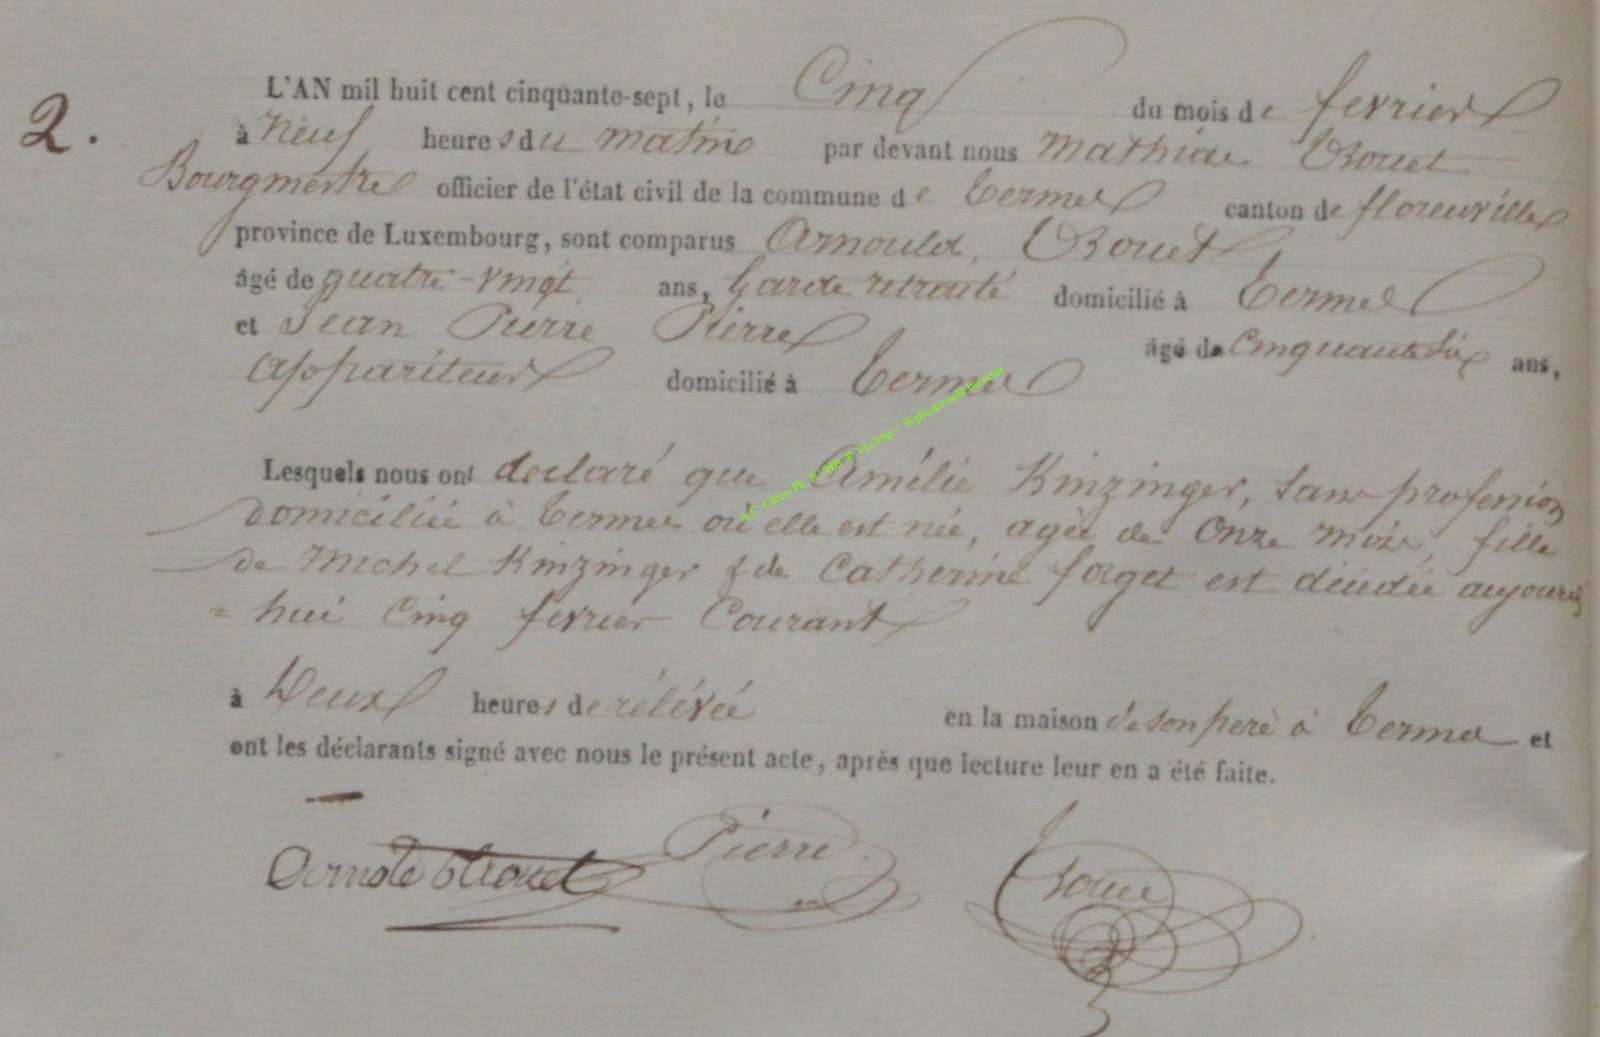 2.
L'AN mil huit cent cinquante-sept, le Cinq du mois de fevrier
à Neuf heures du matin par devant nous Mathieu Chouet
Bourgmestre officier de l'état civil de la commune de termes canton de florenville
province de Luxembourg, sont comparus Arnould, Chouet
âgé de quatre-vingt ans, Garde retraité domicilié à termes
et Jean Pierre Pierre âgé de Cinquante Six ans,
Appariteur domicilié à termes
Lesquels nous ont declaré que Amélie Kinzinger, Sans profession
domiciliée à termes où elle est née, agée de Onze mois, fille
de Michel Kinzinger & de Catherine forget est décédée aujourd
= hui Cinq fevrier Courant
à Deux heures de rélévée en la maison de son pere à termes et
ont les déclarants signé avec nous le présent acte, après que lecture leur en a été faite.
Pierre